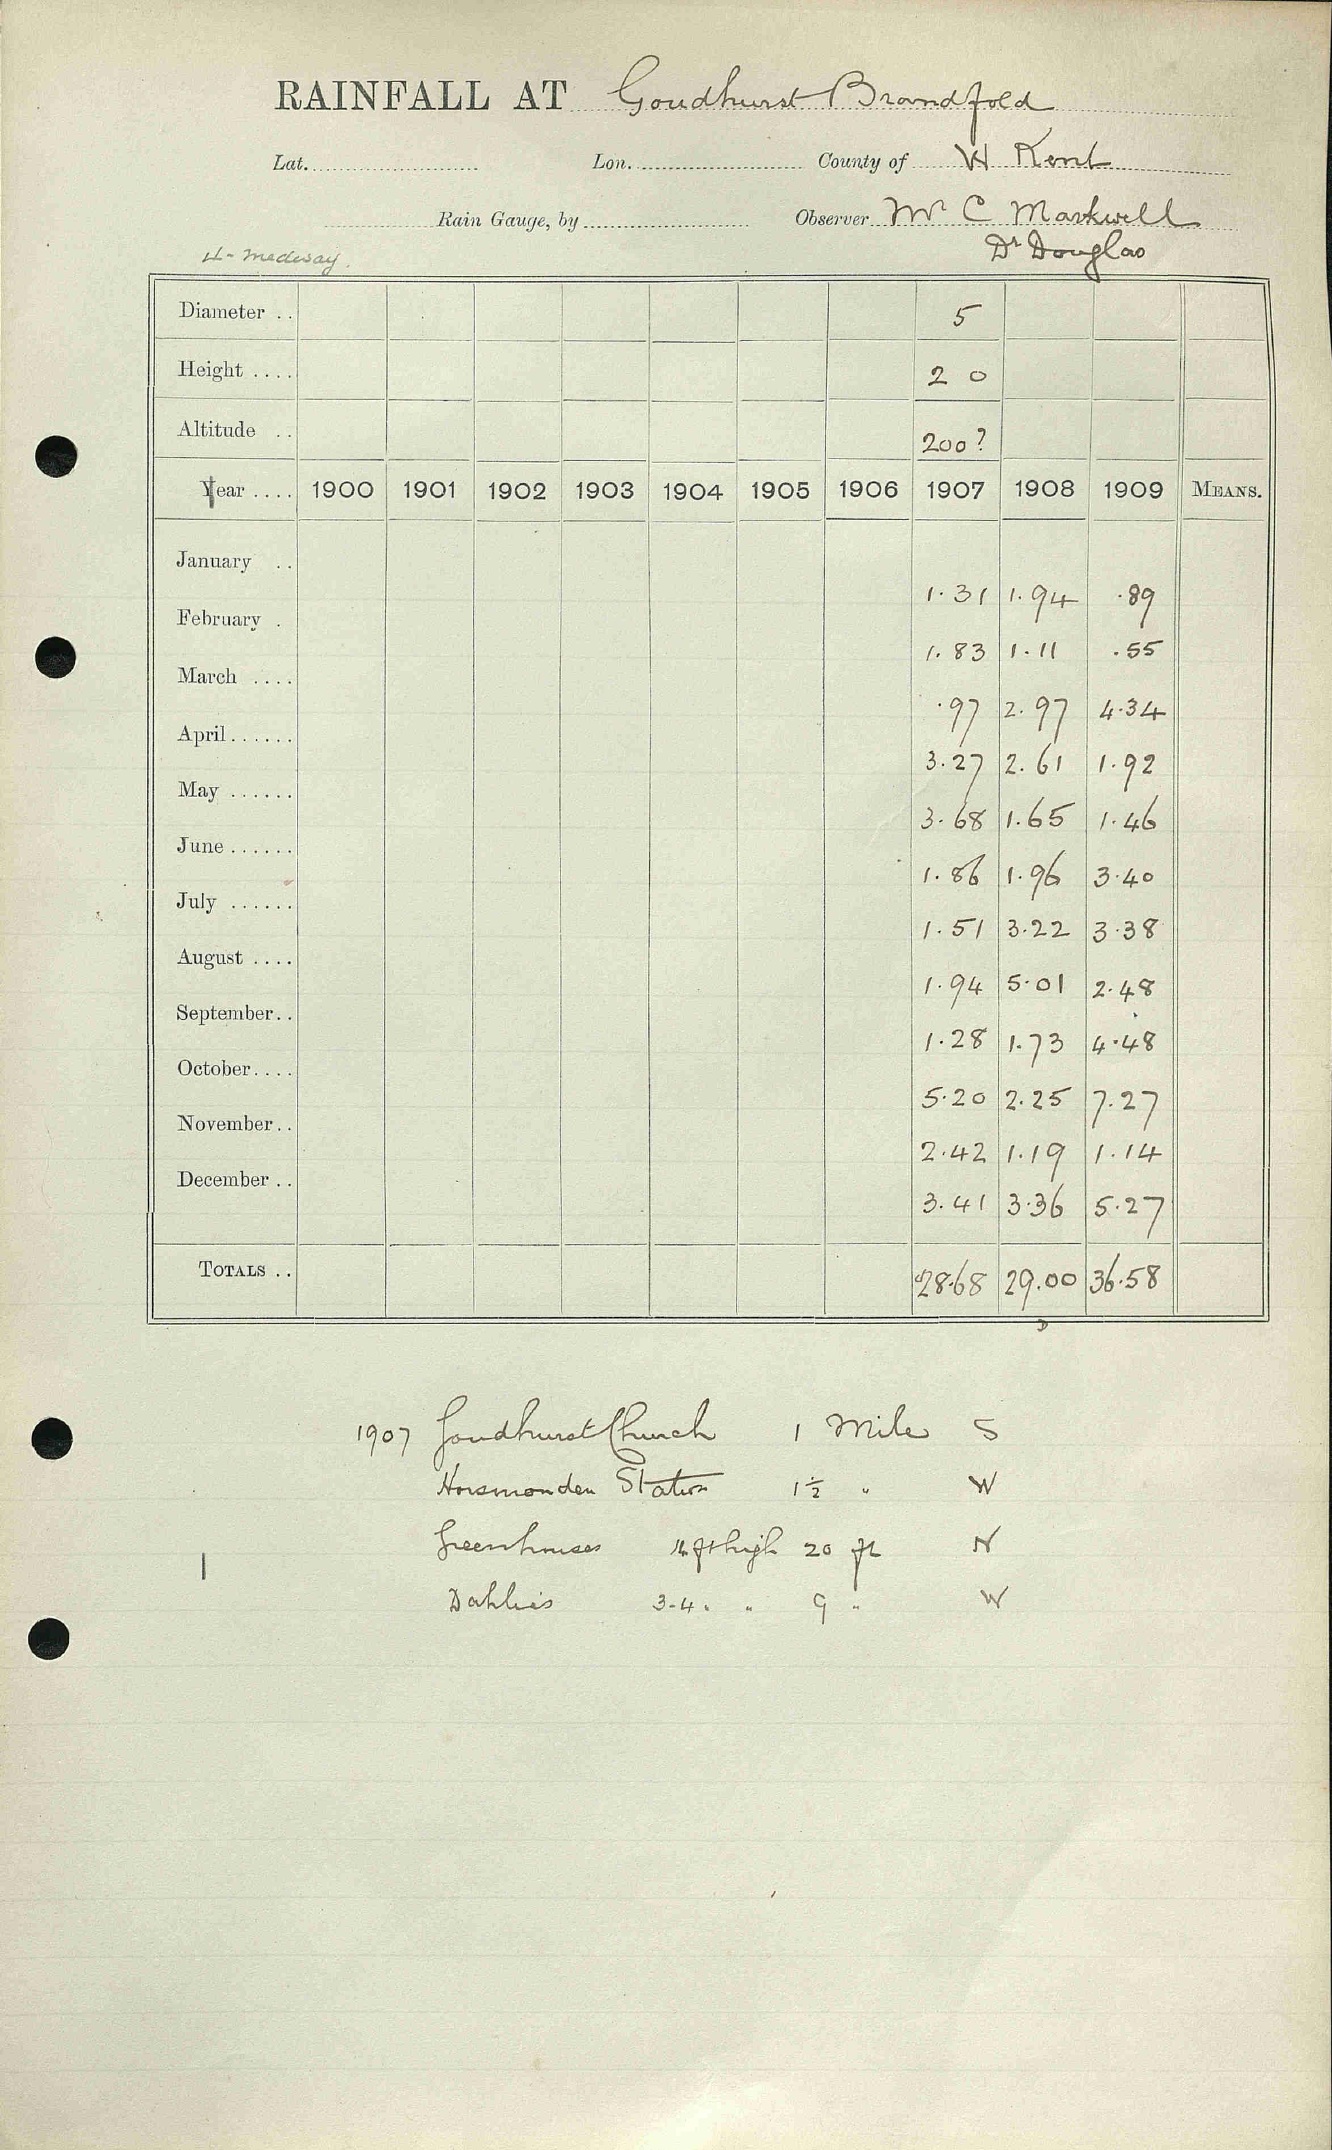 RAINFALL AT Goudhurst Brandfold
Lat. Lon. County of W Kent
Rain Gauge, by Observer Mr C Markwell
Dr Douglas
4-Medway.
Diameter .. 5
Height .... 2 0
Altitude .. 200?
Year .... 1900 1901 1902 1903 1904 1905 1906 1907 1908 1909 MEANS.
January .. 1.31 1.94 .89
February . 1.83 1.11 .55
March .... .97 2.97 4.34
April...... 3.27 2.61 1.92
May ...... 3.68 1.65 1.46
June ...... 1.86 1.96 3.40
July ...... 1.51 3.22 3.38
August .... 1.94 5.01 2.48
September.. 1.28 1.73 4.48
October.... 5.20 2.25 7.27
November.. 2.42 1.19 1.14
December .. 3.41 3.36 5.27
TOTALS .. 28.68 29.00 36.58
1907 Goudhurst Church 1 Mile S
Horsmonden Station 1½ " W
Greenhouses ft high 20 ft N
Dahlias 3-4 " " 9 " W